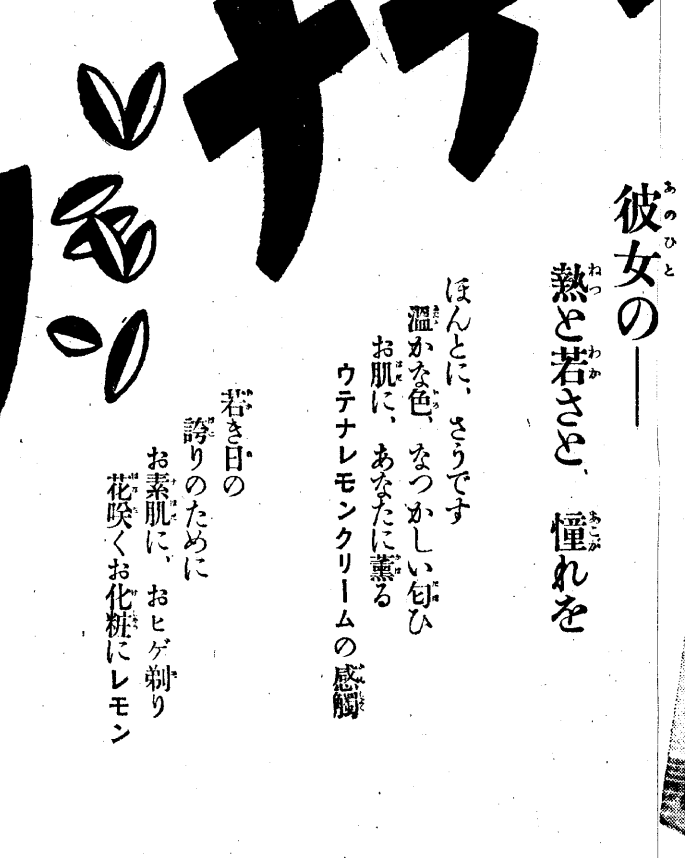 彼女の――
熱と若さと、憧れを
ほんとに、さうです
溫かな色、なつかしい匂ひ
お肌に、あなたに薫る
ウテナレモンクリームの感觸
若き日の
誇りのために
お素肌に、おヒゲ剃り
花咲くお化粧にレモン
テナ
レモン